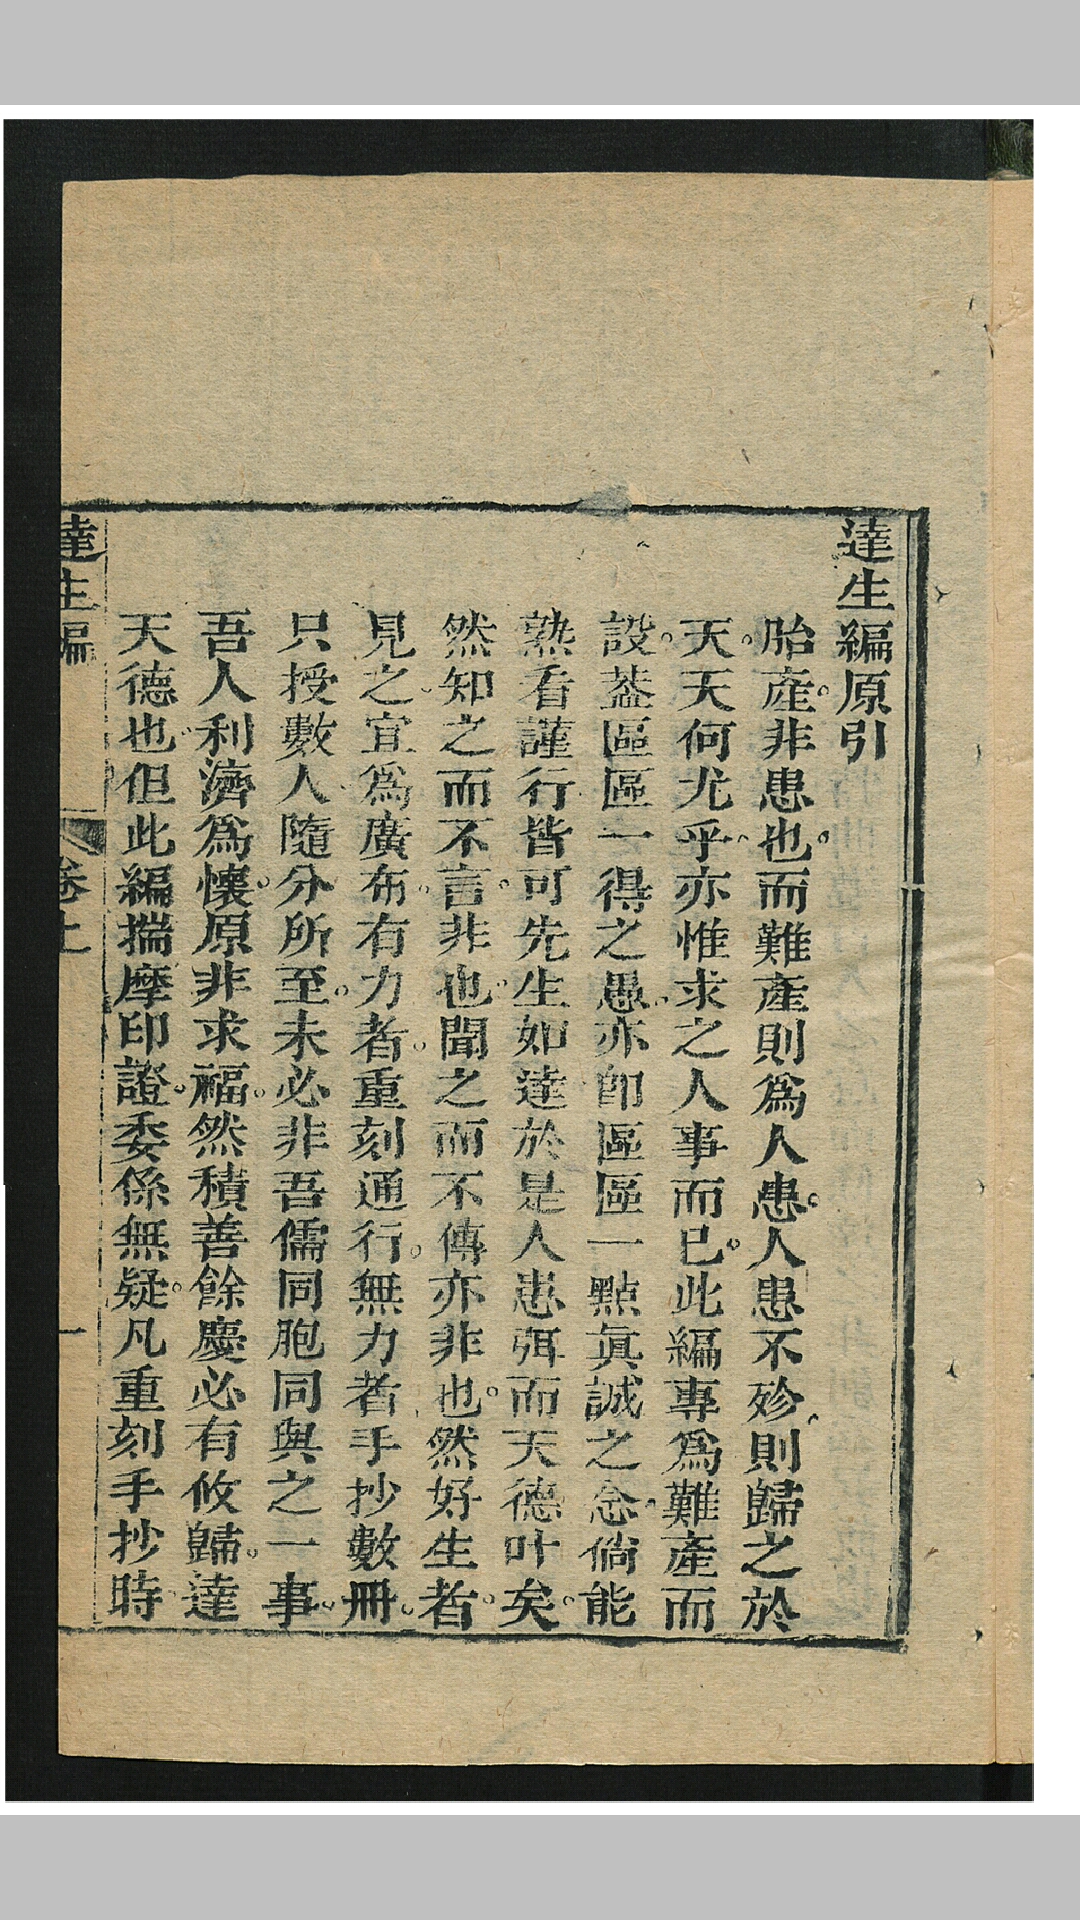 達生編原引
胎產。非患也。而難產則爲人患。人患不殄則歸之於
天。天何尤乎。亦惟求之人事而已。此編專爲難產而
設。葢區區一得之愚。亦卽區區一點眞誠之念。倘能
熟看謹行皆可先生如達於是人患弭而天德叶矣。
然知之而不言。非也。聞之而不傳亦非也。然好生者。
見之。宜爲廣布。有力者。重刻通行。無力者手抄數冊。
只授數人。隨分所至。未必非吾儒同胞同與之一事。
吾人利濟爲懷。原非求福。然積善餘慶必有攸歸。達
天德也。但此編揣摩印證。委係無疑。凡重刻手抄時
達生編
卷上
一